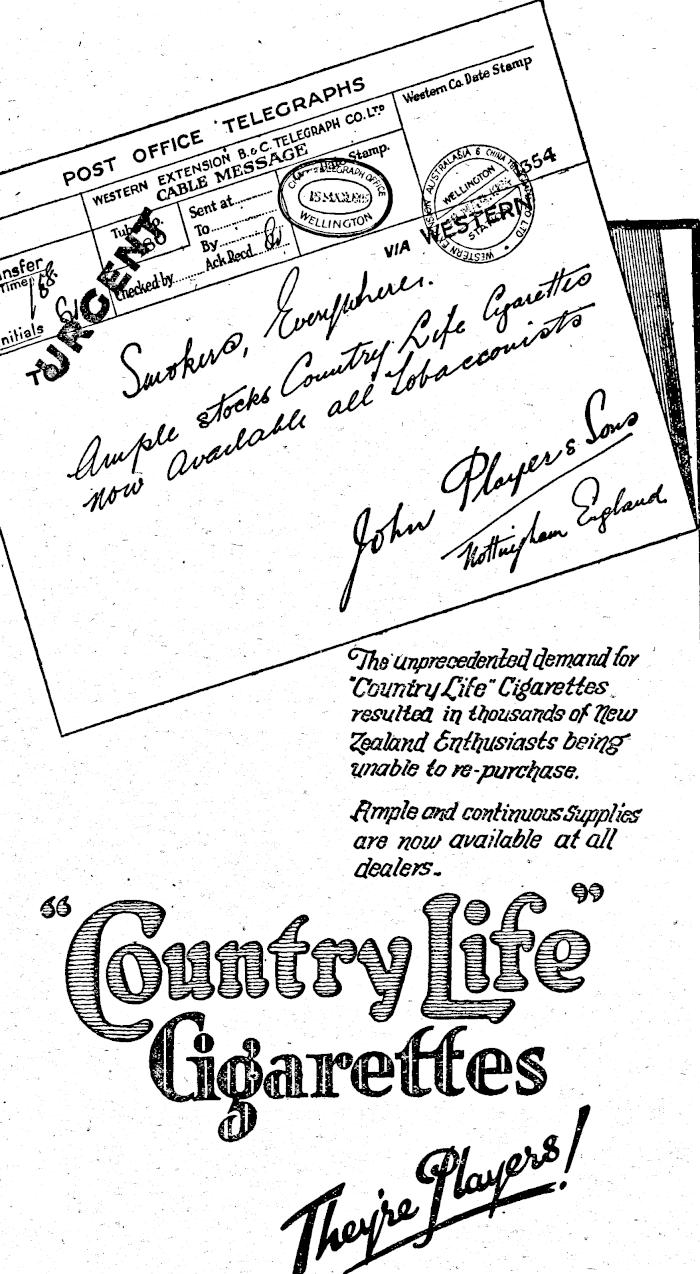 POST OFFICE TELEGRAPHS
WESTERN EXTENSION B. & C. TELEGRAPH CO. LTD
CABLE MESSAGE
Western Co. Date Stamp
Date Stamp.
Sent at
To
By
Ack Recd.
Checked by
Time
nitials
TO URGENT
TELEGRAPH OFFICE
WELLINGTON
AUSTRALASIA & CHINA
WELLINGTON
354
VIA WESTERN
Smokers, Everywhere.
Ample stocks Country Life Cigarettes
now available all Tobacconists
John Player & Sons
Nottingham England
The unprecedented demand for
"Country Life" Cigarettes
resulted in thousands of New
Zealand Enthusiasts being
unable to re-purchase.
Ample and continuous Supplies
are now available at all
dealers.
"Country Life"
Cigarettes
They're Players!